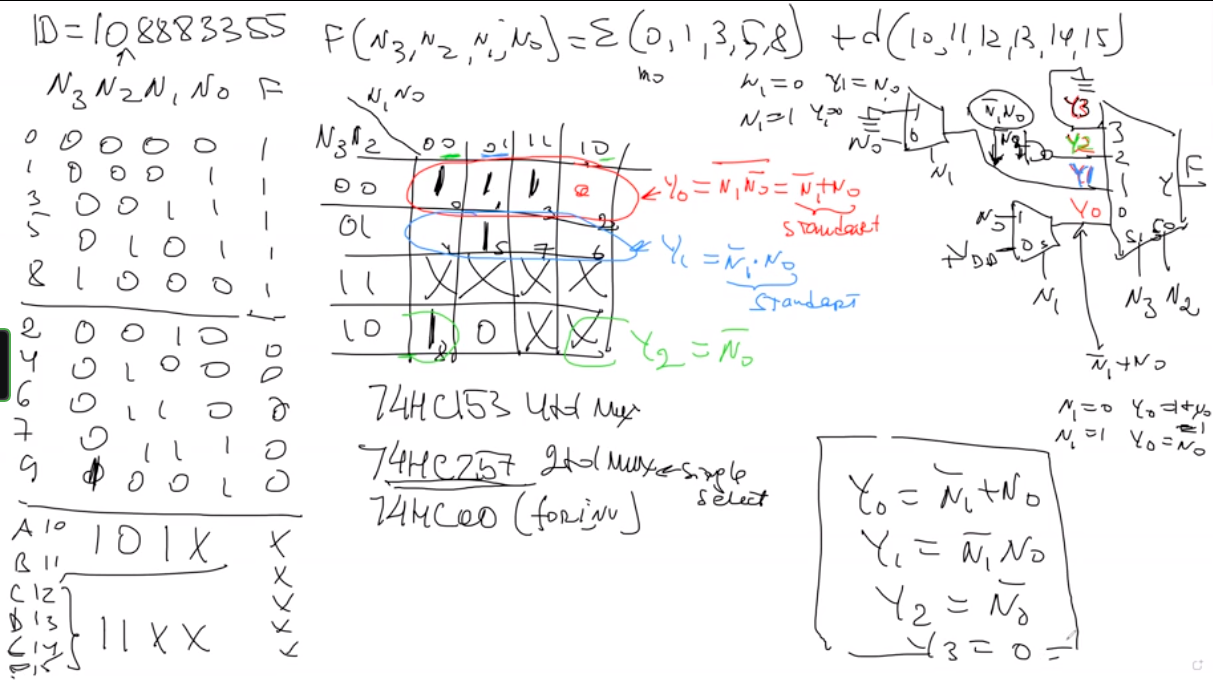 ID=108883355
F(N3,N2,N1,N0)=Σ(0,1,3,5,8)+d(10,11,12,13,14,15)
m0
N3 N2 N1 N0 F
0 0 0 0 0 1
1 0 0 0 1 1
3 0 0 1 1 1
5 0 1 0 1 1
8 1 0 0 0 1
2 0 0 1 0 0
4 0 1 0 0 0
6 0 1 1 0 0
7 0 1 1 1 0
9 1 0 0 1 0
A 10
B 11
101X
X
X
C 12
D 13
E 14
F 15
11XX
X
X
X
N1N0
N3N2 00 01 11 10
00 1 0 1 1 1 3 0 2
01 4 1 5 7 6
11 X X X X
10 1 8 0 X X
Y0 = N̅1̅N̅̅0̅ = N̅1+N0
standart
Y1 = N̅1·N0
standart
Y2 = N̅0
74HC153 4to1 Mux
74HC257 2to1 Mux ← single
select
74HC00 (for inv)
N1=0 Y1=N0
N1=1 Y1=0
1
0
N0
N1
N̅1N0
Y3
Y2
Y1
Y0
3
2
1
0
Y
F
S1 S0
N3 N2
N0
1
0 S
+VDD
N1
N̅1+N0
N1=0 Y0=1+N0
=1
N1=1 Y0=N0
Y0 = N̅1+N0
Y1 = N̅1N0
Y2 = N̅0
Y3 = 0 =